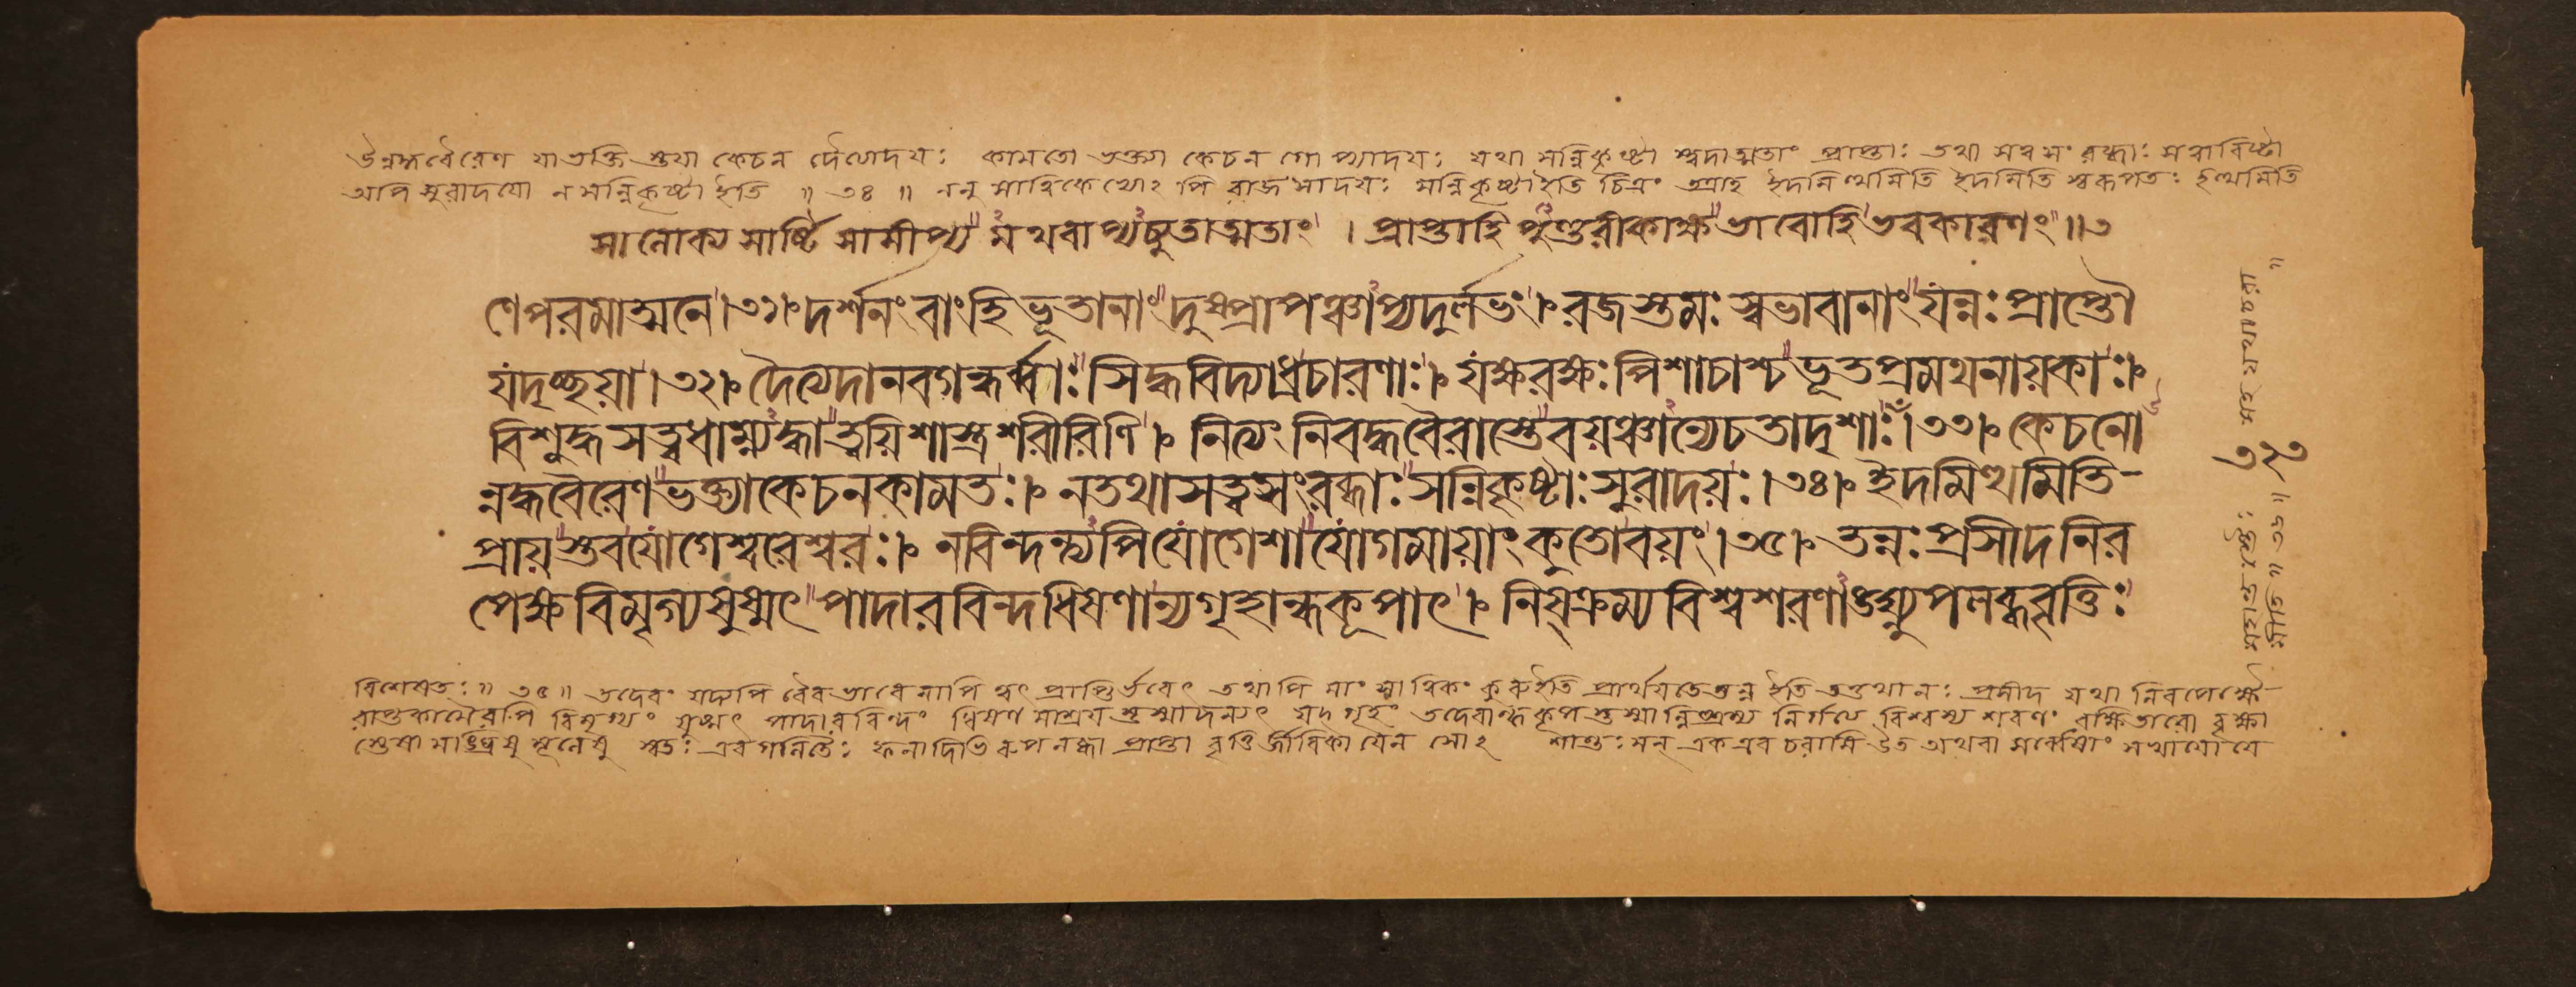 উন্নদ্ধবৈরেণ যা ভক্তি স্তয়া কেচন দৈত্যাদয়ঃ কামতো ভক্ত্যা কেচন গোপ্যাদয়ঃ যথা সন্নিকৃষ্টা স্ত্বদাত্মতাং প্রাপ্তাঃ তথা সত্বসংরব্ধাঃ সত্বাবিষ্টা
অপি সুরাদযো ন সন্নিকৃষ্টা ইতি ॥ ৩৪ ॥ ননু সাত্বিকেভ্যোঽপি রাজসাদয়ঃ সন্নিকৃষ্টাইতি চিত্রং তত্রাহ ইদমিত্থমিতি ইদমিতি স্বরূপতঃ ইত্থমিতি
সালোক্য সার্ষ্টি সামীপ্য মথবাপ্যচ্যুতাত্মতাং । প্রাপ্তাহি পুণ্ডরীকাক্ষ ভাবোহি ভবকারণং ॥৩
ণেপরমাত্মনে।৩১। দর্শনং বাং হি ভূতানাং দুষ্প্রাপঞ্চাপ্যদুর্লভং। রজস্তমঃ স্বভাবানাং যন্নঃ প্রাপ্তৌ
যদৃচ্ছয়া।৩২। দৈত্যদানবগন্ধর্ব্বাঃ সিদ্ধবিদ্যাধ্রচারণাঃ। যক্ষরক্ষঃ পিশাচাশ্চ ভূতপ্রমথনায়কাঃ।
বিশুদ্ধসত্ত্বধাম্ন্যদ্ধা ত্বয়িশাস্ত্রশরীরিণি। নিত্যং নিবদ্ধবৈরাস্তেবয়ঞ্চান্যেচতাদৃশাঃ।৩৩। কেচনো
ন্নদ্ধবৈরেণ ভক্ত্যাকেচনকামতঃ। নতথাসত্ত্বসংরব্ধাঃ সন্নিকৃষ্টাঃ সুরাদয়ঃ।৩৪। ইদমিত্থমিতি-
প্রায়স্তবযোগেশ্বরেশ্বরঃ। নবিন্দন্ত্যপিযোগেশাযোগমায়াং কুতোবয়ং।৩৫। তন্নঃ প্রসীদনির
পেক্ষবিমৃগ্যযুষ্মৎ পাদারবিন্দধিষণান্যগৃহান্ধকূপাৎ। নিষ্ক্রম্যবিশ্বশরণাঙ্ঘ্র্যুপলব্ধবৃত্তিঃ
বিশেষতঃ॥ ৩৫॥ তদেবং যদ্যপি বৈরভাবেনাপি ত্বৎ প্রাপ্তির্ভবেৎ তথাপি মাং সাত্বিকং কুরুইতি প্রার্থয়তেতন্ন ইতি প্রসীদ যথা নিরপেক্ষৈ-
রাপ্তকামৈরপি বিমৃগ্যং যুষ্মৎ পাদারবিন্দং ধিষণ মাশ্রয়স্তস্মাদন্যৎ যদ্ গৃহং তদেবান্ধকূপস্তস্মান্নিষ্ক্রম্য নির্গত্য বিশ্বস্য শরণং রক্ষিতারো বৃক্ষা
স্তেষামঙ্ঘ্রিষু মূলেষু স্বতঃ এব গলিতৈঃ ফলাদিভিরুপলব্ধা প্রাপ্তা বৃত্তির্জীবিকা যেন সোঽ শান্তঃসন্ একএব চরামি উত অথবা সর্বেষাং সখায়ো যে
মহান্তস্তৈঃ সহ
মীতি ॥ ৩৬ ॥
৩২৩